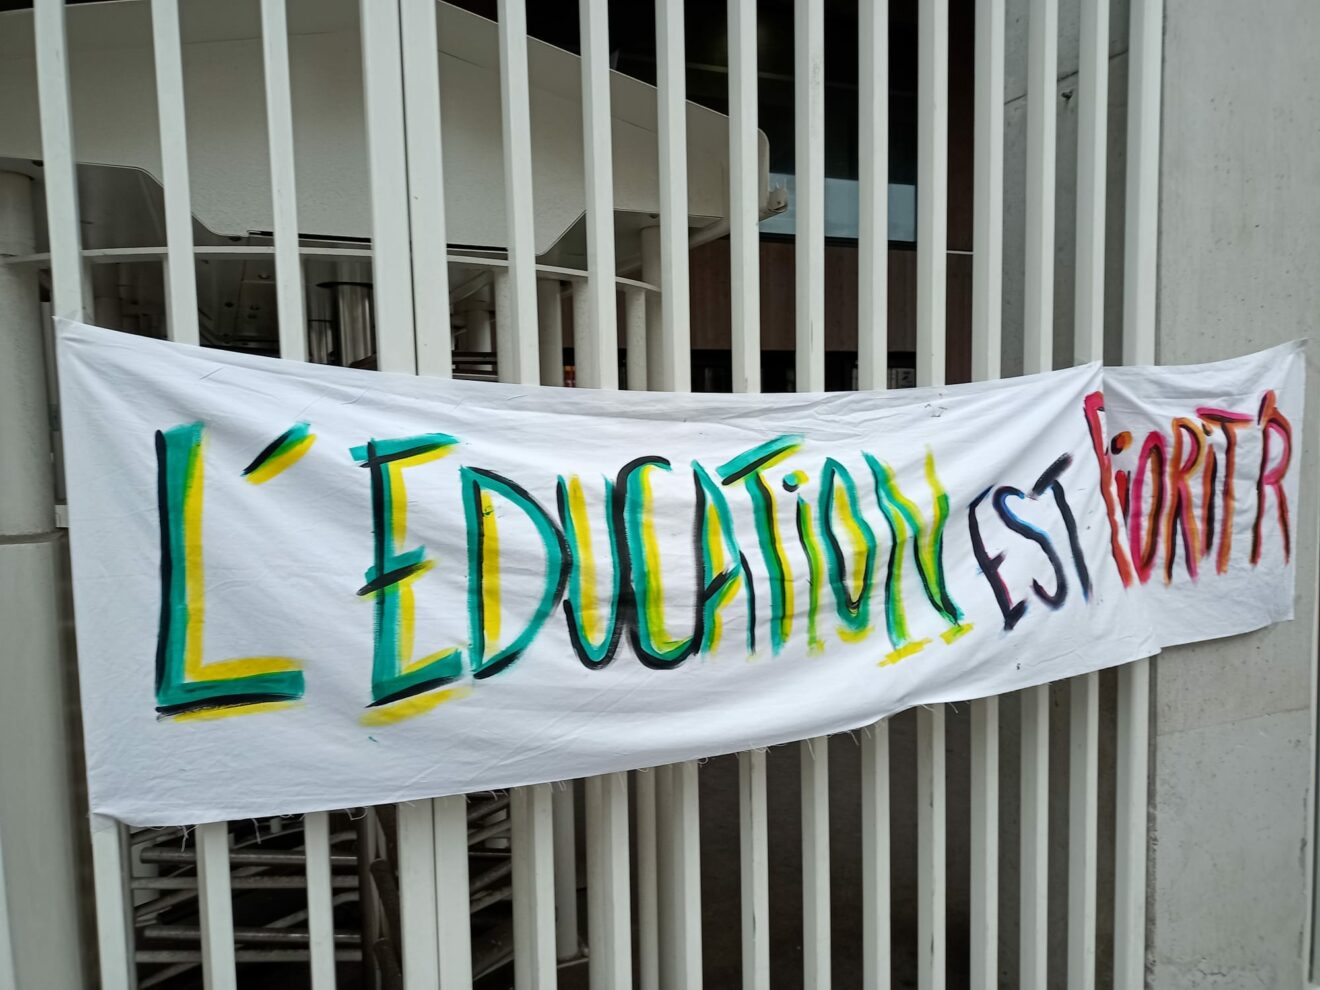 L'EDUCATiON EST PRiORiT'R